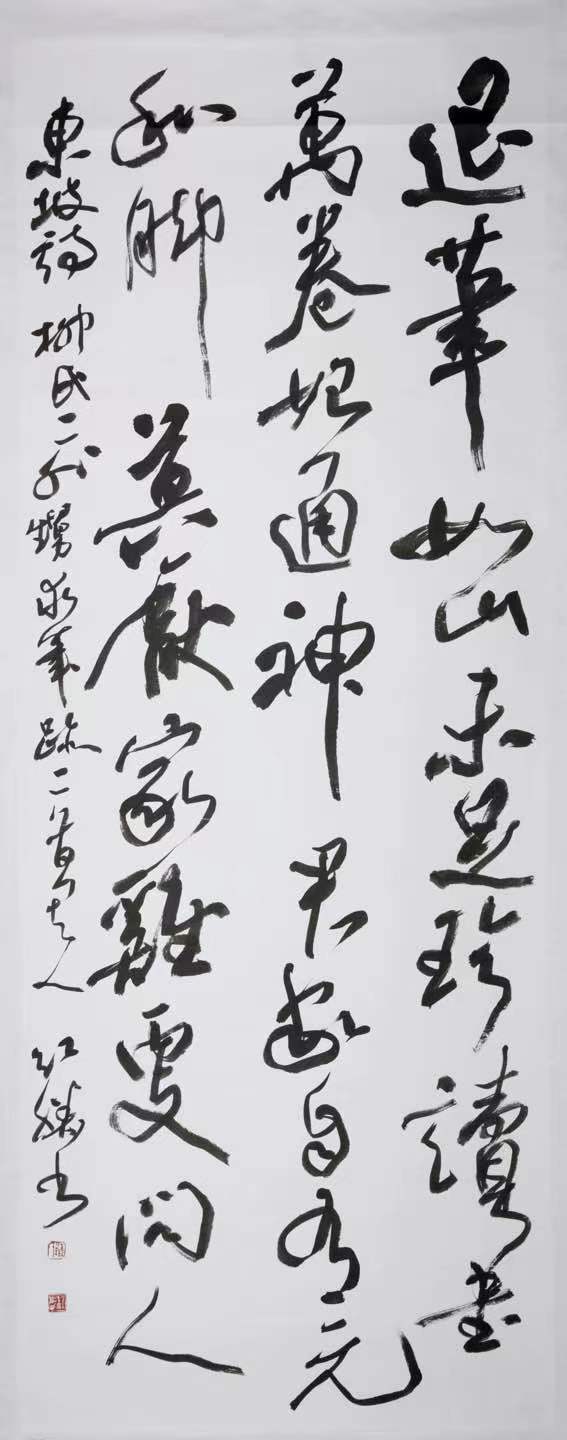 退筆如山未足珍讀書
萬卷始通神君家自有元
和脚莫厭家雞更問人
東坡詩 柳氏二外甥求筆跡二首 書